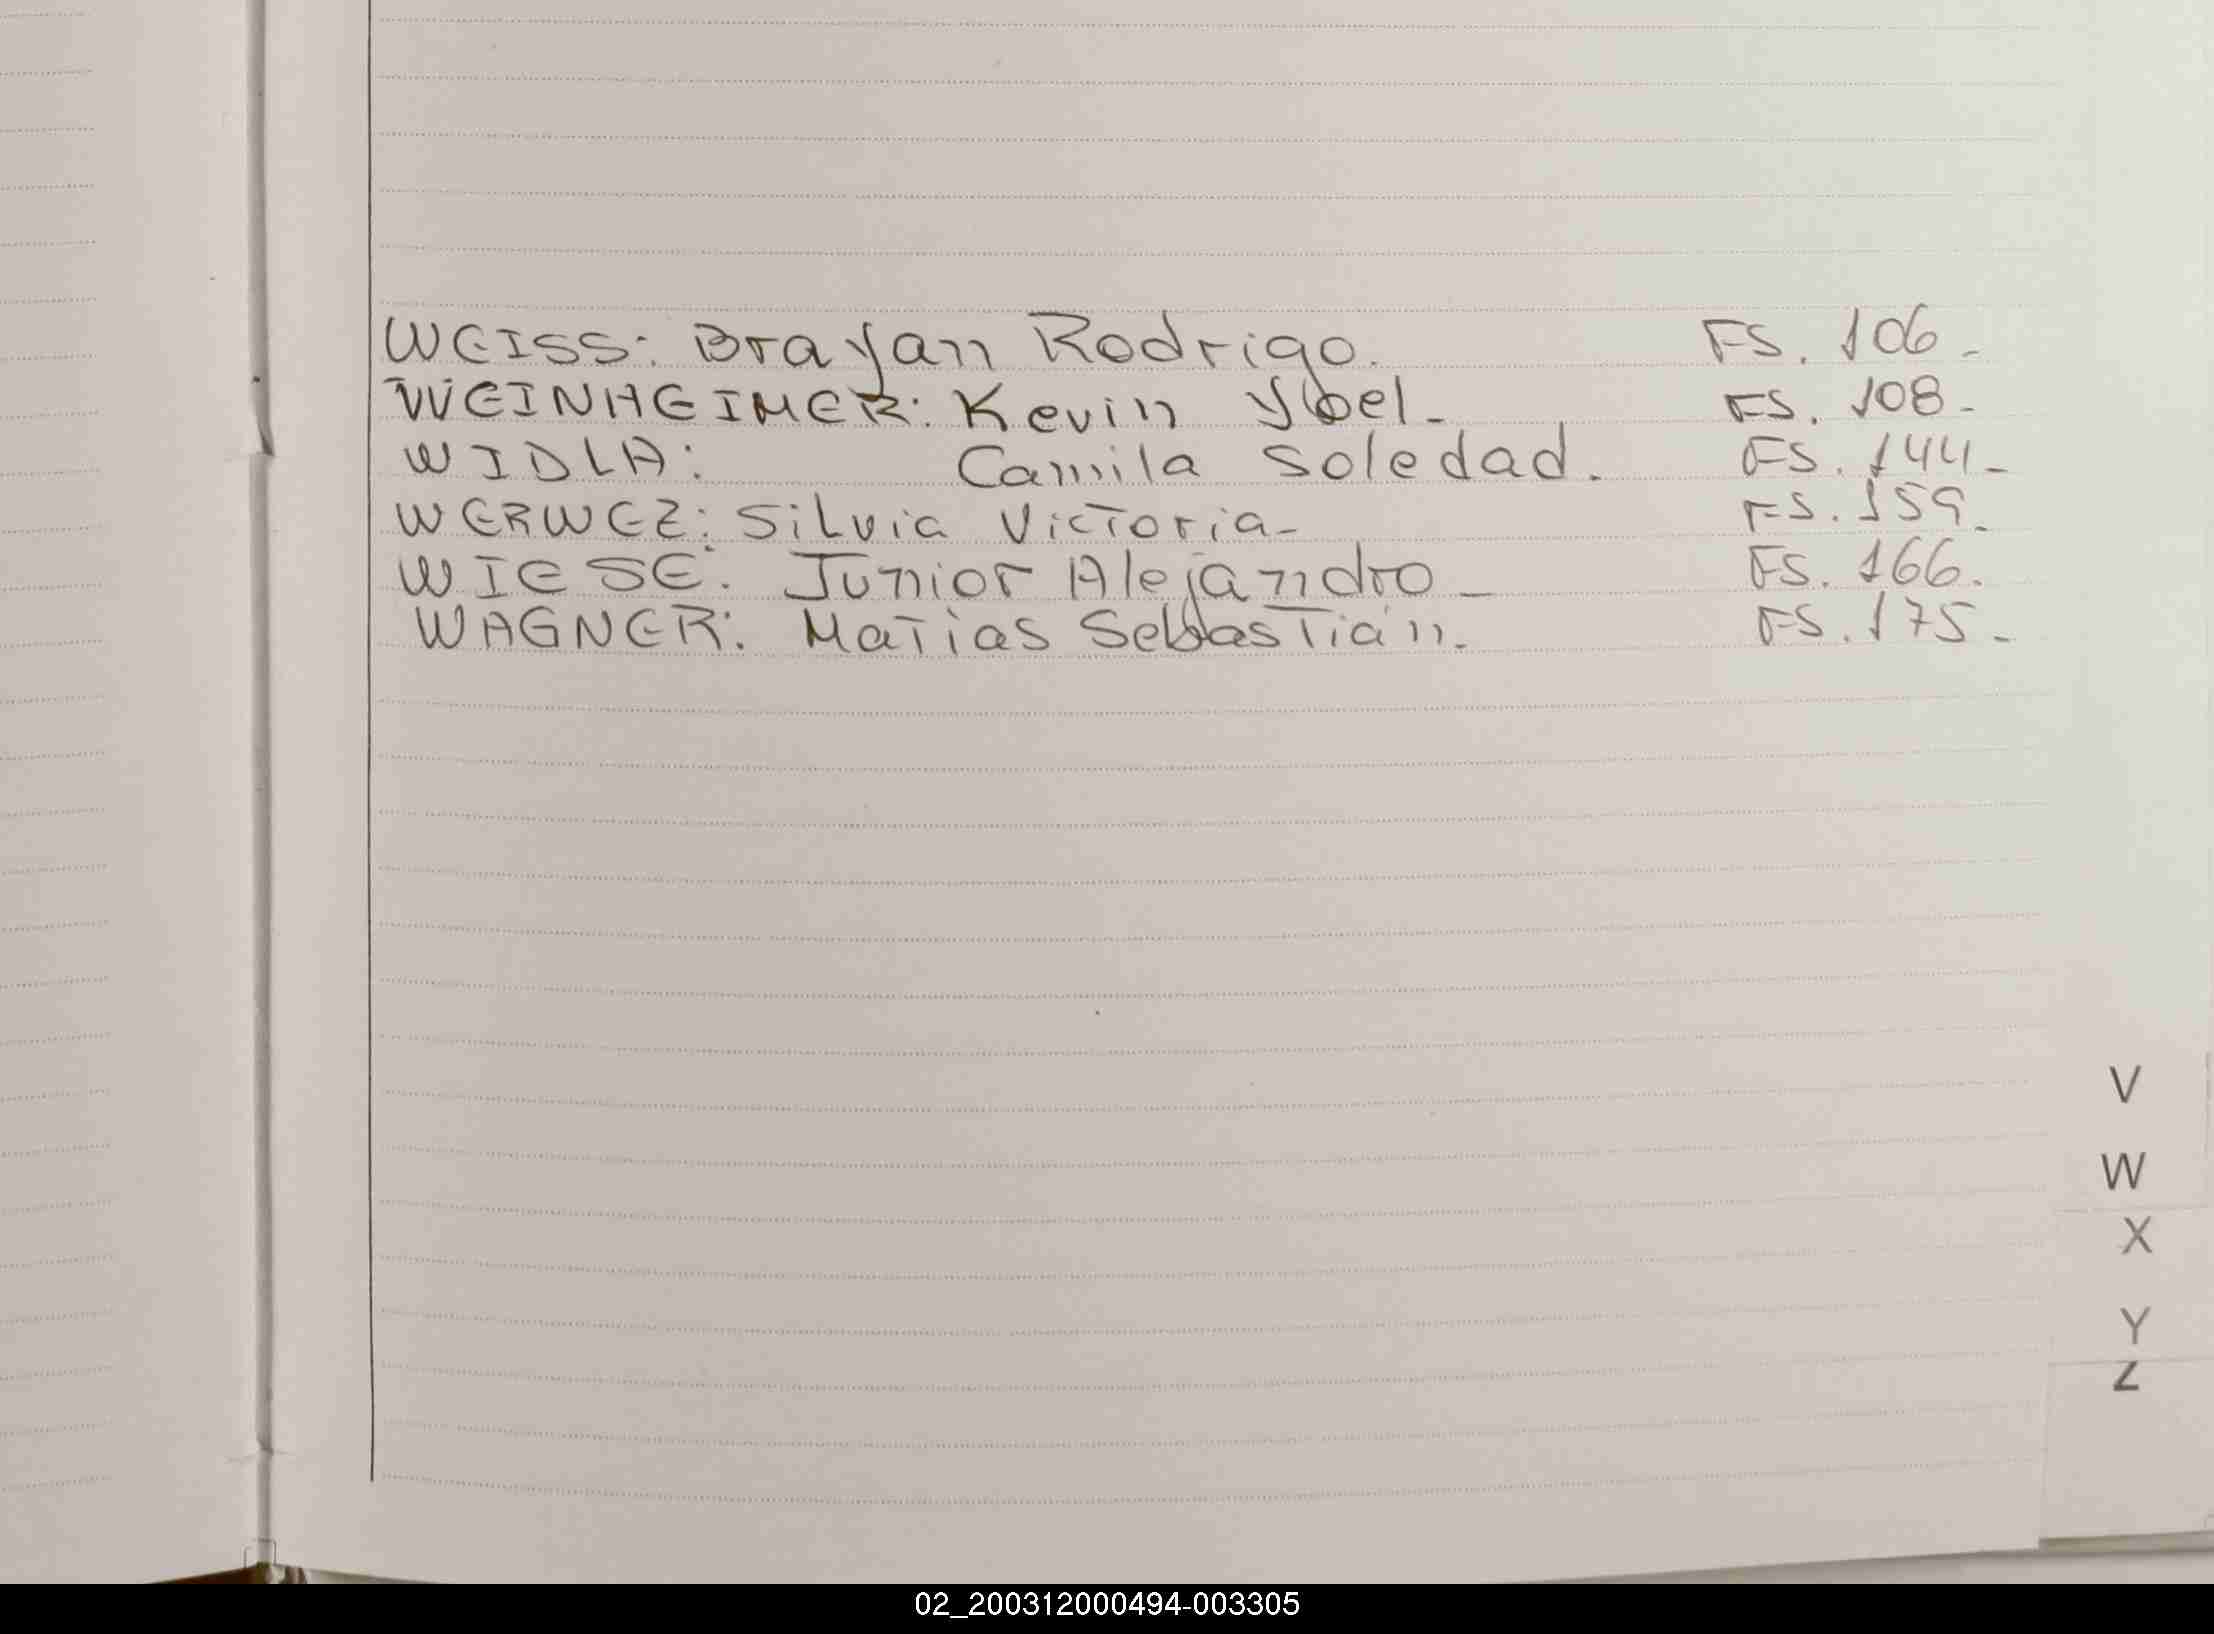 WEISS: Brayan Rodrigo. FS. 106-
WEINHEIMER: Kevin Yoel- FS. 108-
WIDLA: Camila Soledad. FS. 144-
WERWEZ: Silvia Victoria- FS. 159-
WIESE: Junior Alejandro- FS. 166.
WAGNER: Matias Sebastián. FS. 175-
V
W
X
Y
Z
02_200312000494-003305